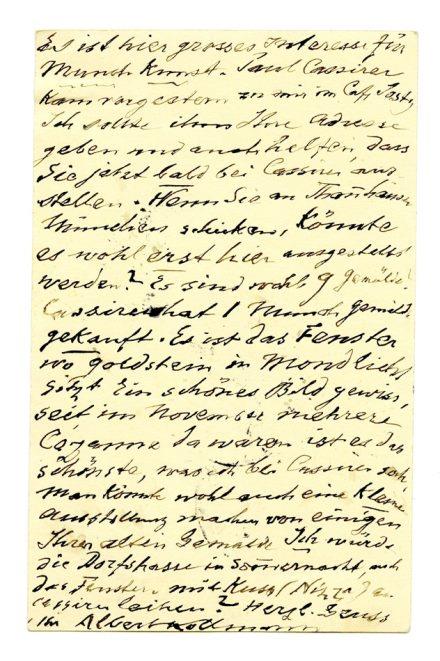 Es ist hier grosses Interesse für
Munch Kunst. Paul Cassirer
kam vorgestern zu mir im Café
Ich sollte ihm Ihre Adresse
geben und auch helfen, dass
Sie jetzt bald bei Cassirer aus
stellen. Wenn Sie an Thannhauser
München schicken, könnte
es wohl erst hier ausgestellt
werden? Es sind wohl 9 Gemälde?
Cassirer hat 1 Munch gemäld.
gekauft. Es ist das Fenster
wo Goldstein in Mondlicht
sitzt Ein schönes Bild gewiss,
seit im November mehrere
Cézanne da waren ist es das
schönste, was ich bei Cassirer sah
man könnte wohl auch eine kleine
Ausstellung machen von einigen
Ihrer alten Gemälde Ich würde
die Dorfstrasse in Sommernacht, auch
das Fenster mit Kuss (Nizza) an
Cassirer leihen? Herzl. Gruss
Ihr Albert Kollmann